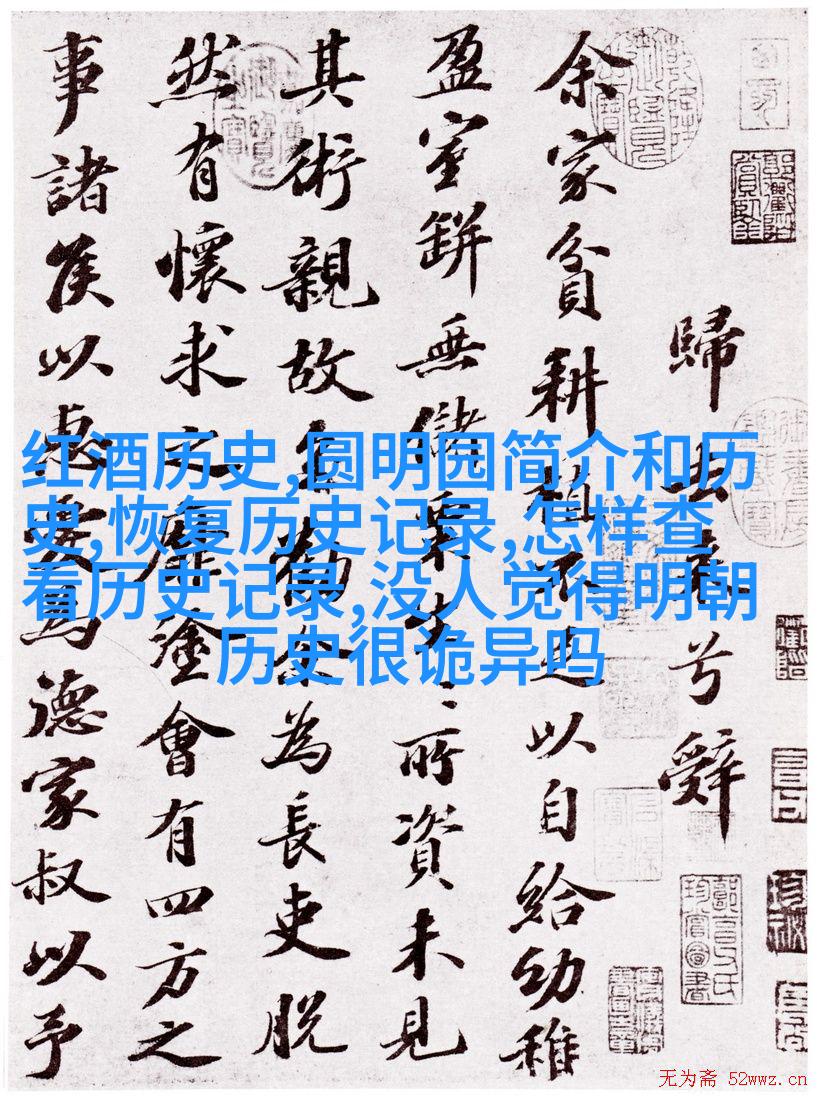 歸去來兮辭
余家貧耕植不足以自給幼稚
盈室缾無儲粟生〻所資未見
其術親故多勸余為長吏脫
然有懷求之靡塗會有四方之
事諸侯以惠愛為德家叔以予
红酒历史,圆明园简介和历
史,恢复历史记录,怎样查
看历史记录,没人觉得明朝
历史很诡异吗
无为斋 52wwz.cn